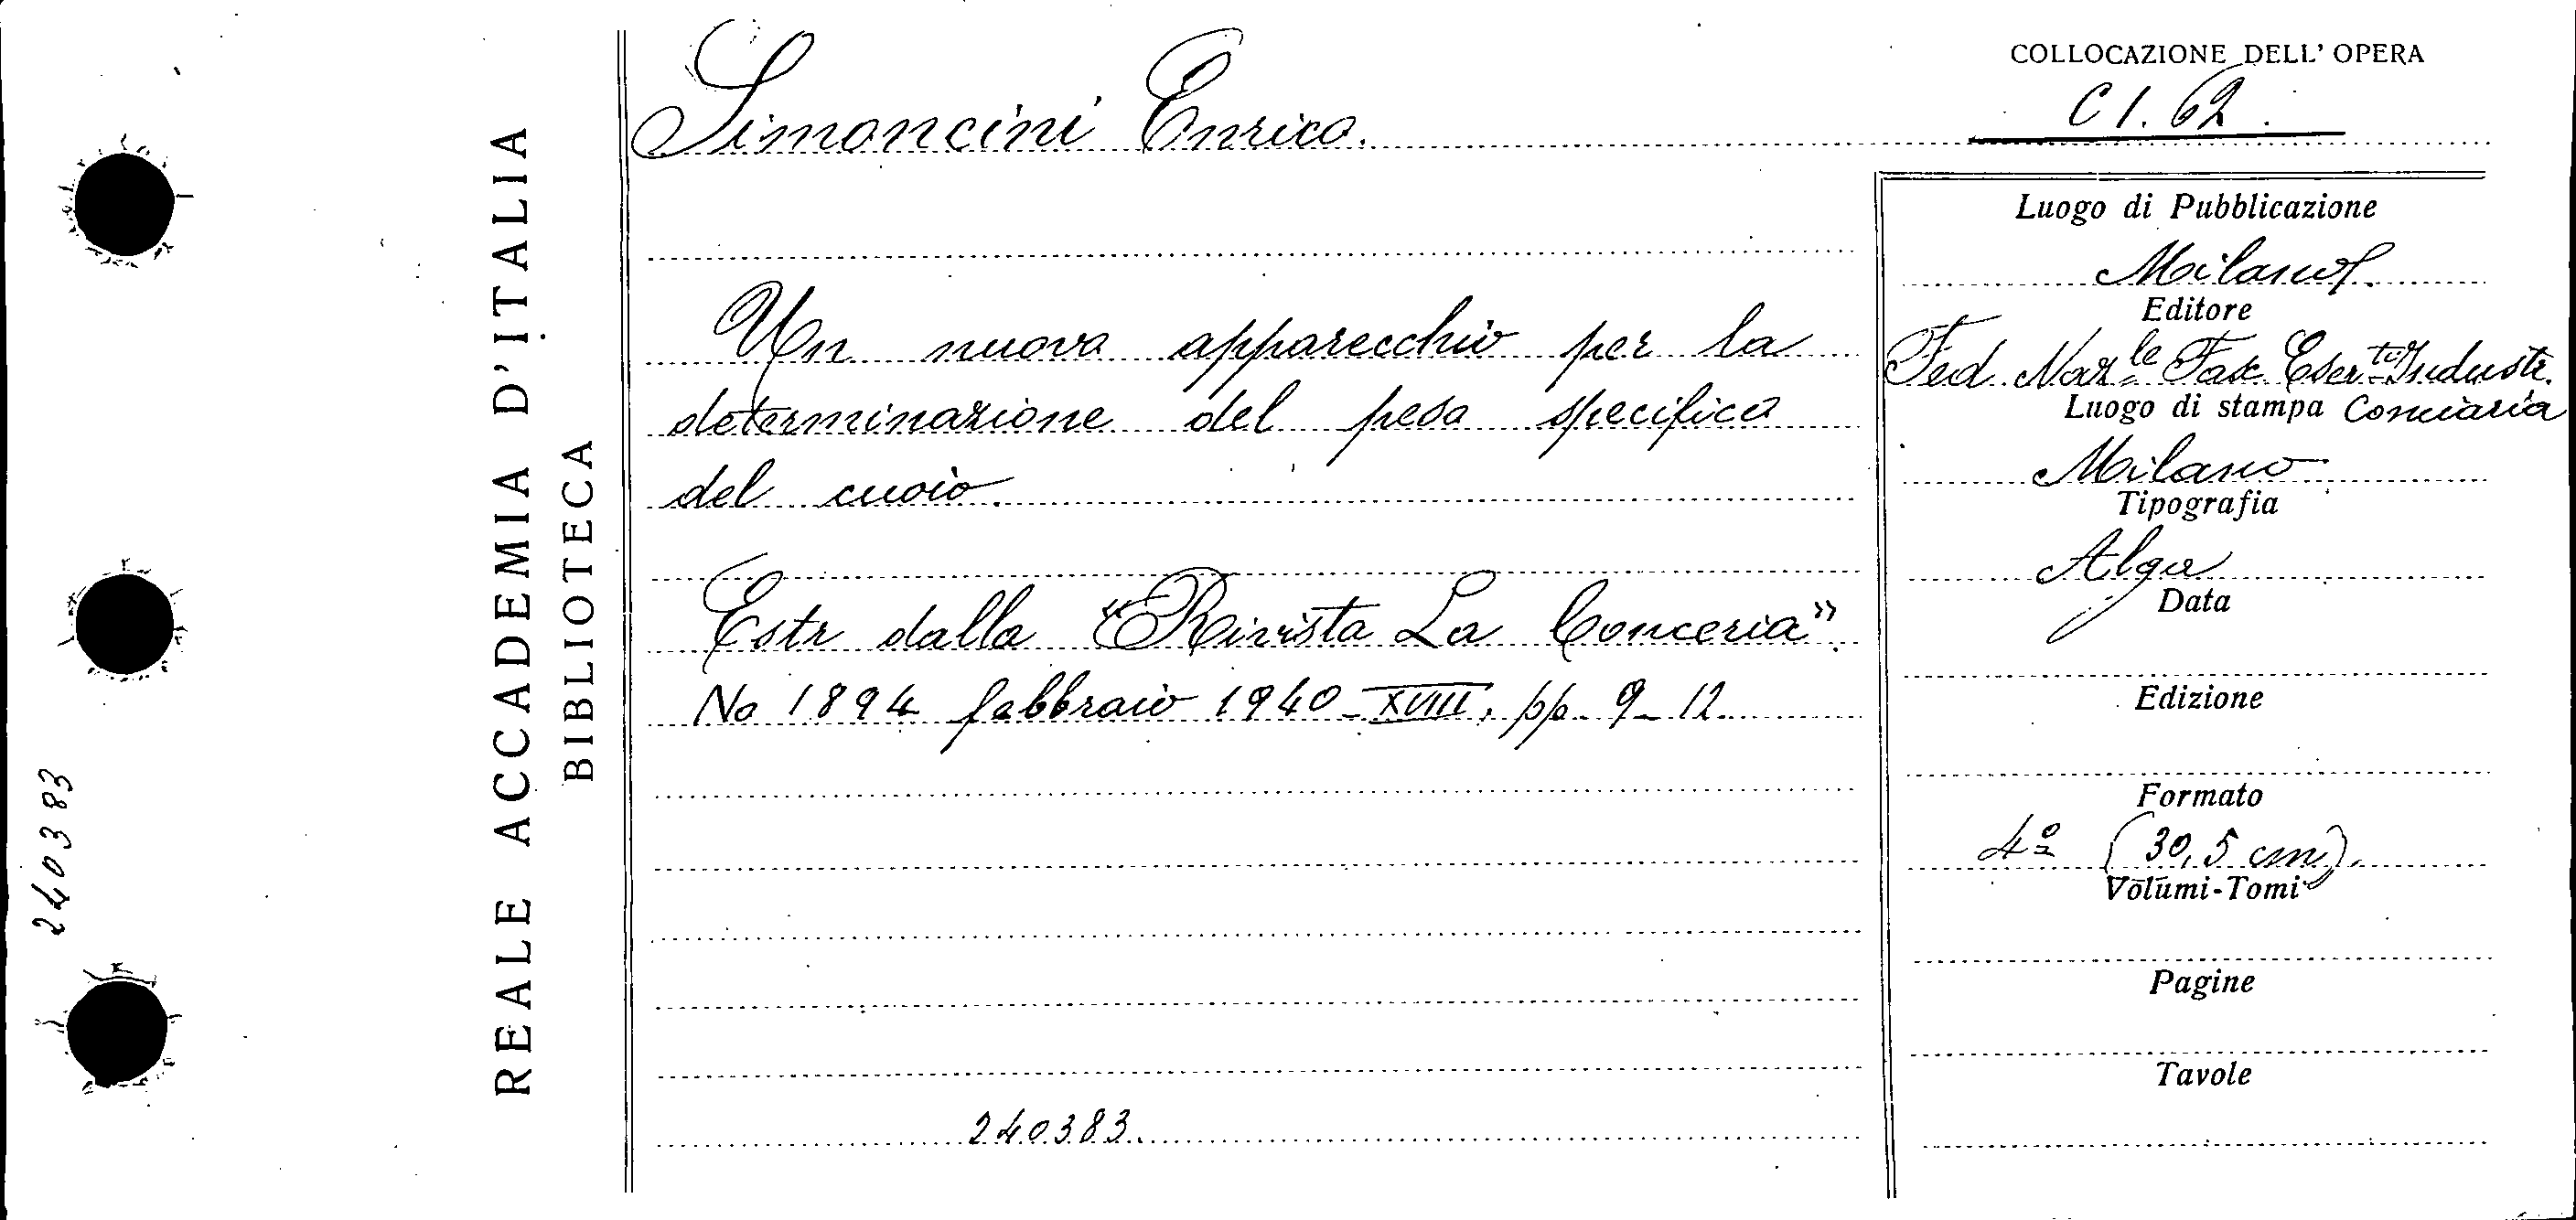 COLLOCAZIONE DELL' OPERA
C 1. 62.
Simoncini Enrico.
Un nuovo apparecchio per la
determinazione del peso specifico
del cuoio.
Estr dalla "Rivista La Conceria".
No 1894 febbraio 1940-XVIII, pp. 9-12
240383
Luogo di Pubblicazione
Milano
Editore
Fed Naz.le Fasc Eser.ti Industr.
Conciaria
Luogo di stampa
Milano
Tipografia
Alga
Data
Edizione
Formato
4º (30,5 cm).
Volumi-Tomi
Pagine
Tavole
REALE ACCADEMIA D'ITALIA
BIBLIOTECA
240383